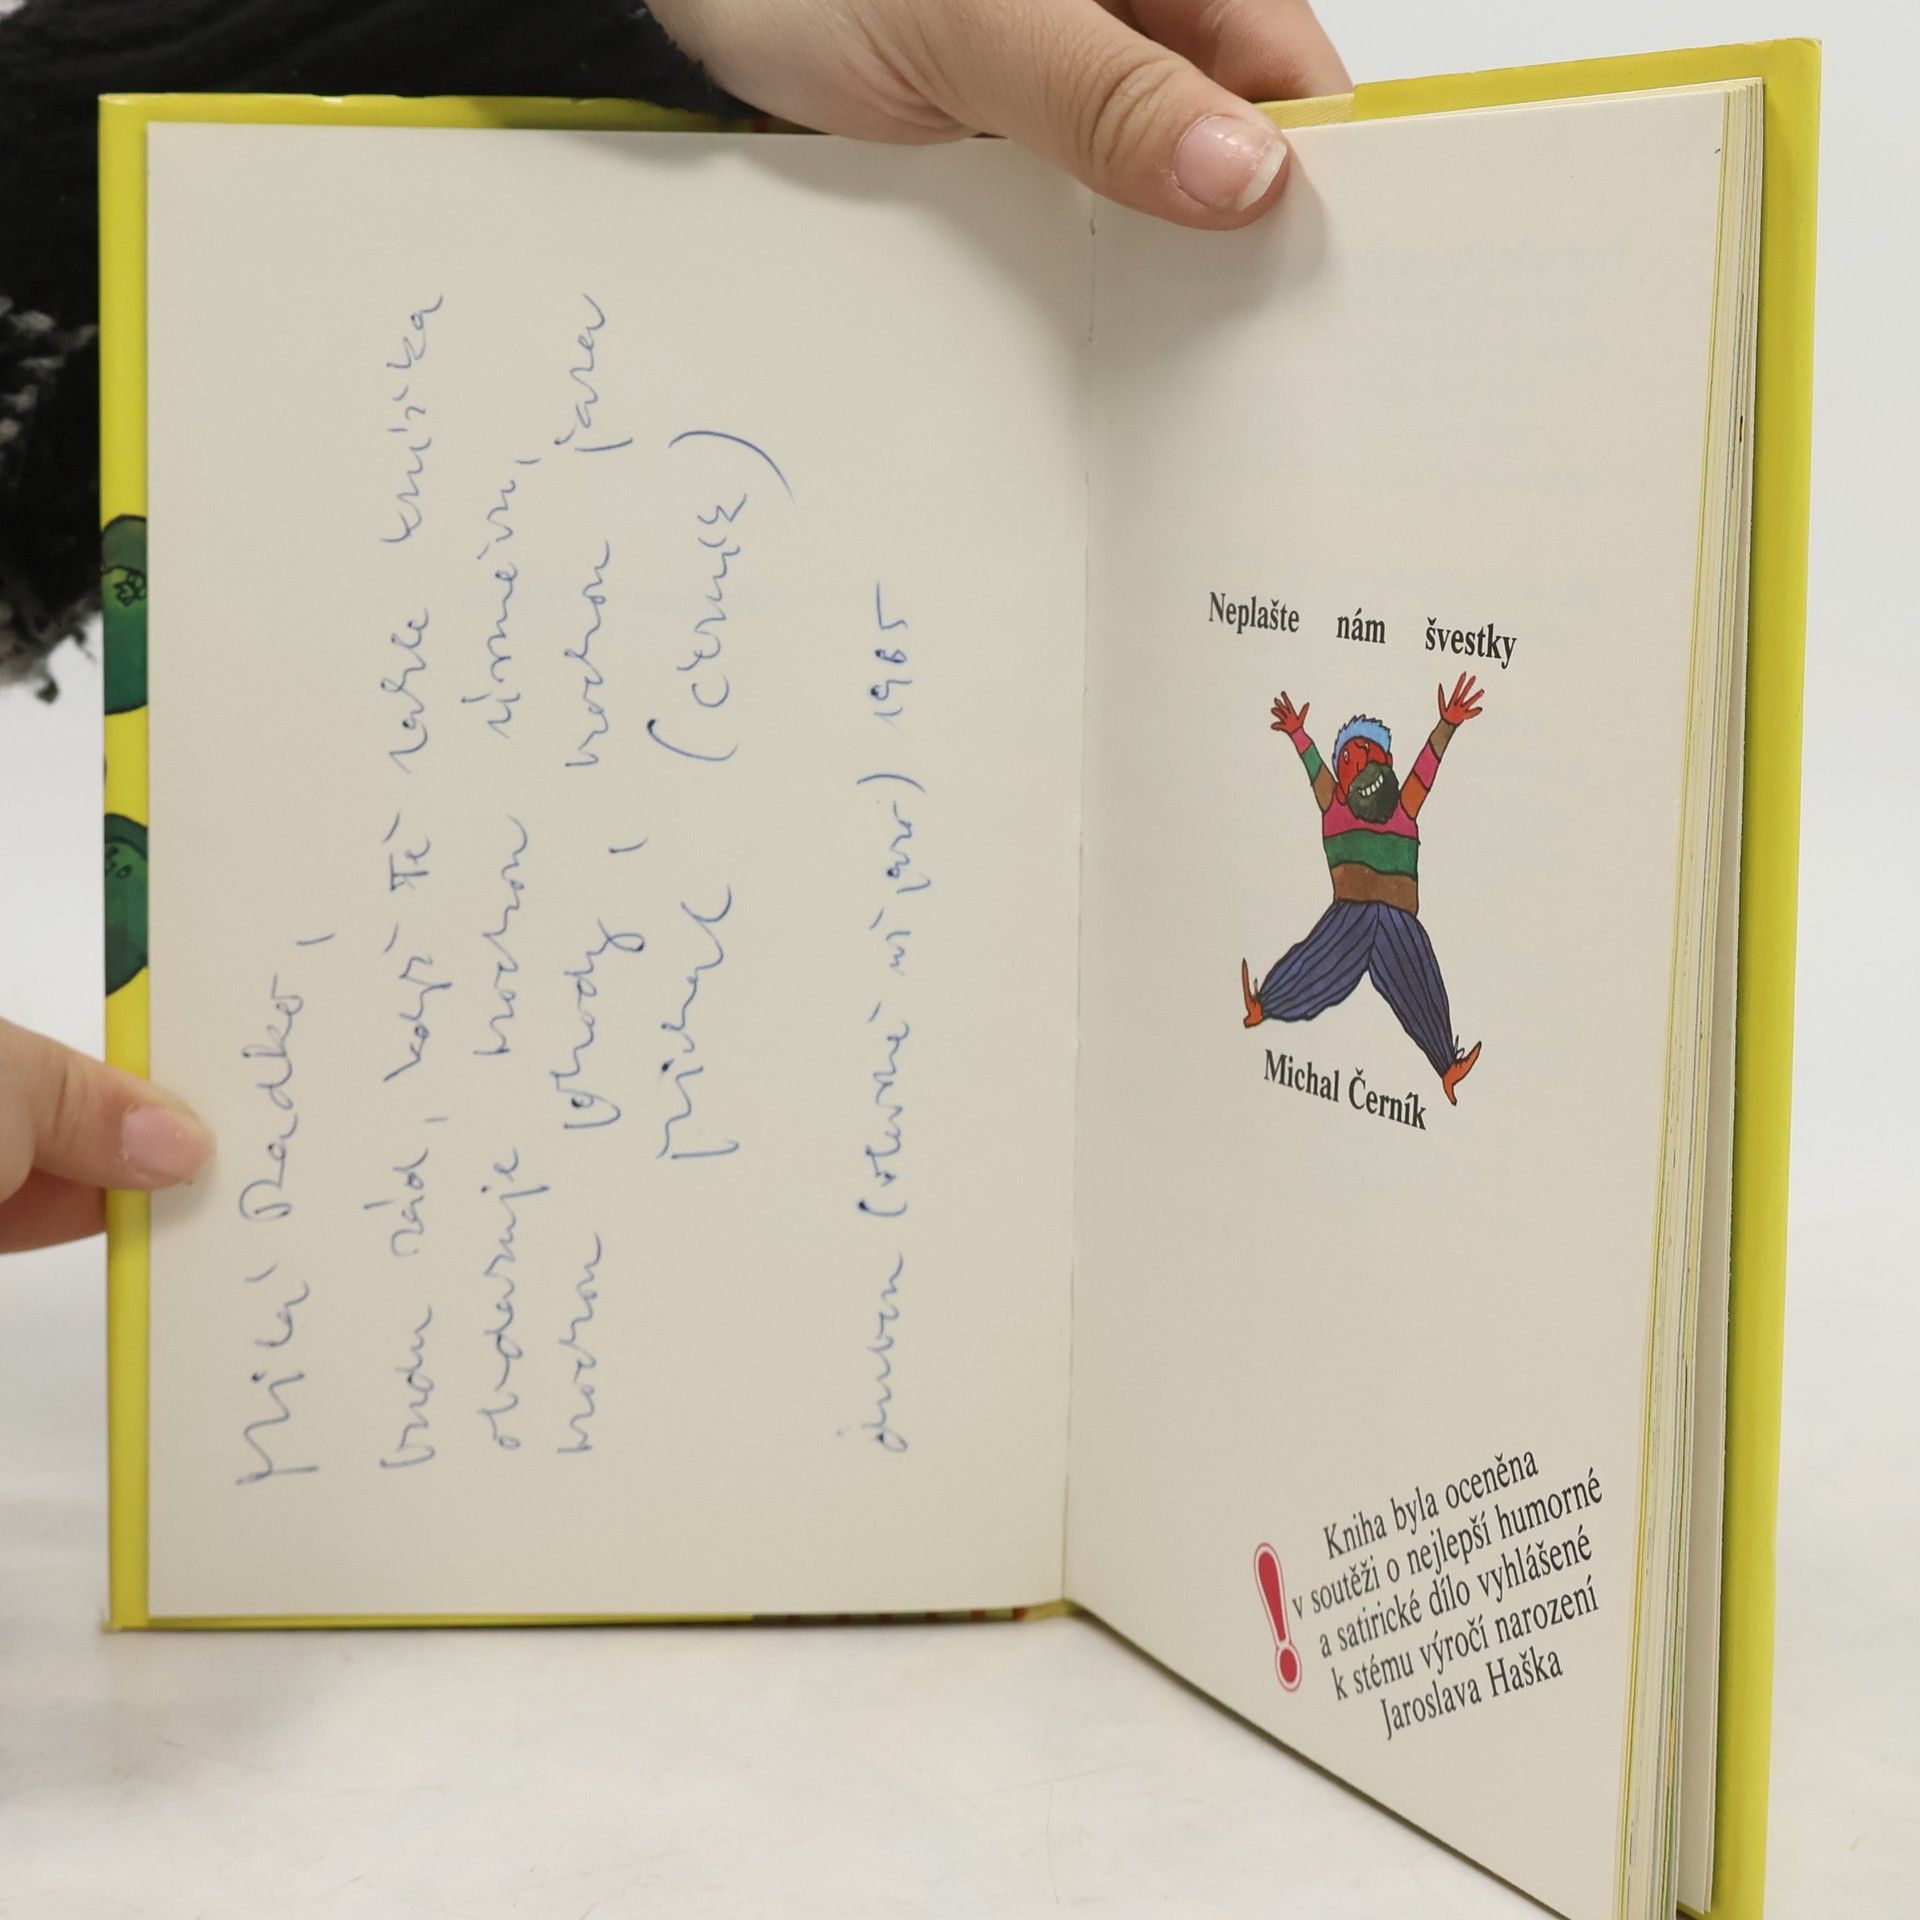 milá Radko,
budu rád, když Tě tahle knížka
obdaruje trochou úsměvu,
trochou pohody, trochou jara
Michal (Černík)
únor 1985
Neplašte nám švestky
Michal Černík
! Kniha byla oceněna
v soutěži o nejlepší humorné
a satirické dílo vyhlášené
k stému výročí narození
Jaroslava Haška